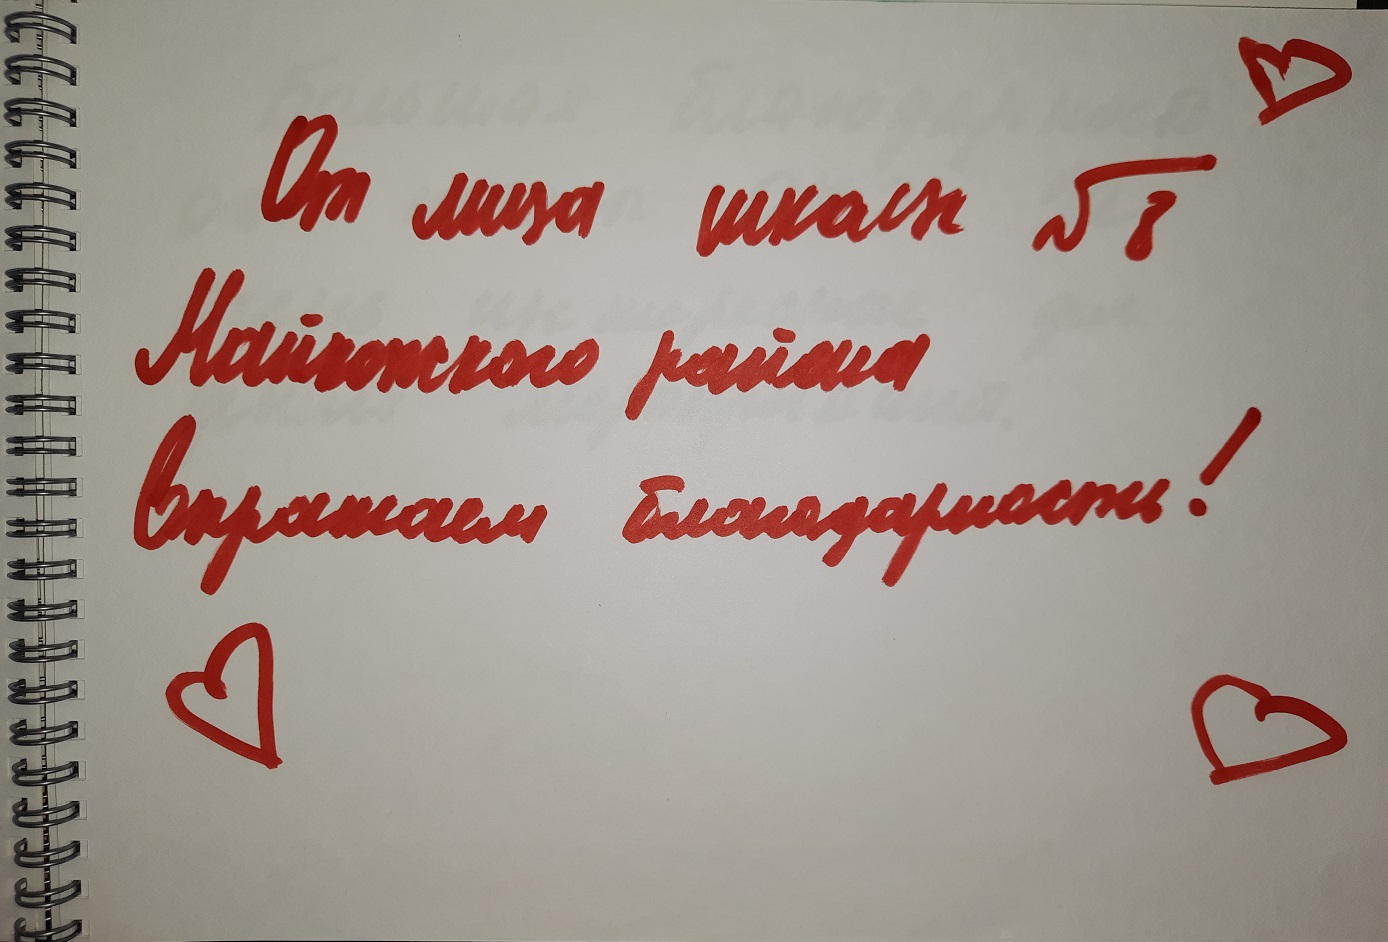 От лица школы №8
Майкопского района
Выражаем благодарность!